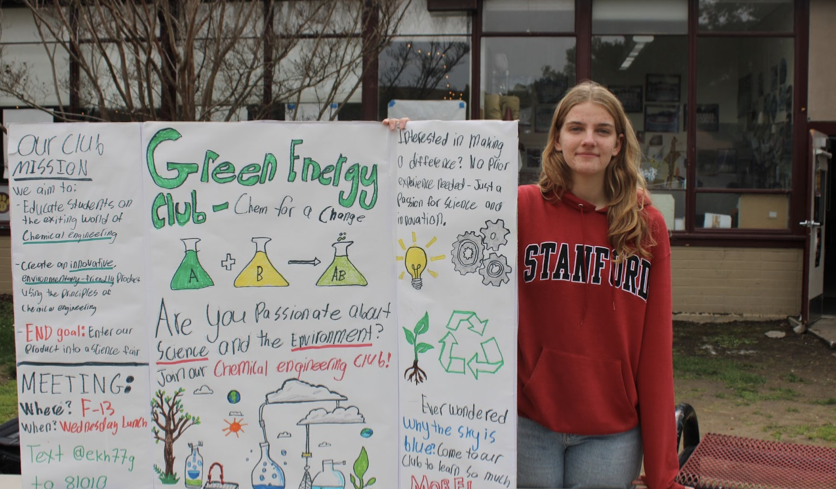 OUR CLUB
MISSION
we aim to:
- Educate students on
the exiting world of
Chemical engineering
- Create an innovative,
environmentally-friendly Product
using the principles of
Chemical engineering
- END goal: Enter our
Product into a science fair
MEETING:
Where? F-13
When? Wednesday Lunch
Text @ekh77g
to 81010
Green Energy
Club - Chem for a Change
A + B → AB
Are You Passionate about
Science and the Environment?
Join our Chemical engineering club!
Interested in making
a difference? No Prior
experience needed - Just a
Passion for science and
innovation.
Ever wondered
why the sky is
blue? Come to our
Club to learn so much
MORE!
STANFORD